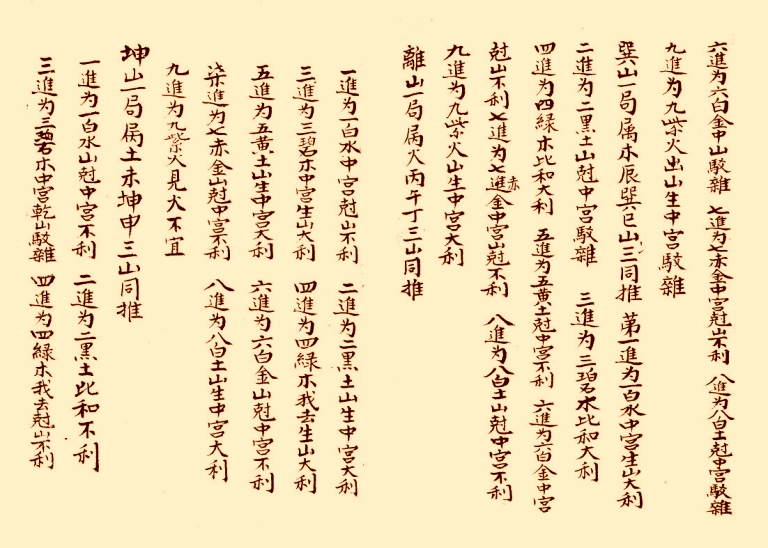 六進为六白金中山駁雜 七進为七赤金中宮尅山不利 八進为八白土尅中宮駁雜
九進为九紫火出山生中宮駁雜
巽山一局属木辰巽巳山三同推 苐一進为一白水中宮生山大利
二進为二黑土山尅中宮駁雜 三進为三碧木比和大利
四進为四緑木比和大利 五進为五黄土尅中宮不利 六進为六白金中宮
尅山不利 七進为七進赤金中宮山尅不利 八進为八白土山尅中宮不利
九進为九紫火山生中宮大利
離山一局属火丙午丁三山同推
一進为一白水中宮尅山不利 二進为二黑土山生中宮大利
三進为三碧木中宮生山大利 四進为四緑木我去生山大利
五進为五黄土山生中宮大利 六進为六白金山尅中宮不利
柒進为七赤金山尅中宮不利 八進为八白土山生中宮大利
九進为九紫火見火不宜
坤山一局属土未坤申三山同推
一進为一白水山尅中宮不利 二進为二黑土比和不利
三進为三碧木中宮乾山駁雜 四進为四緑木我去尅山不利